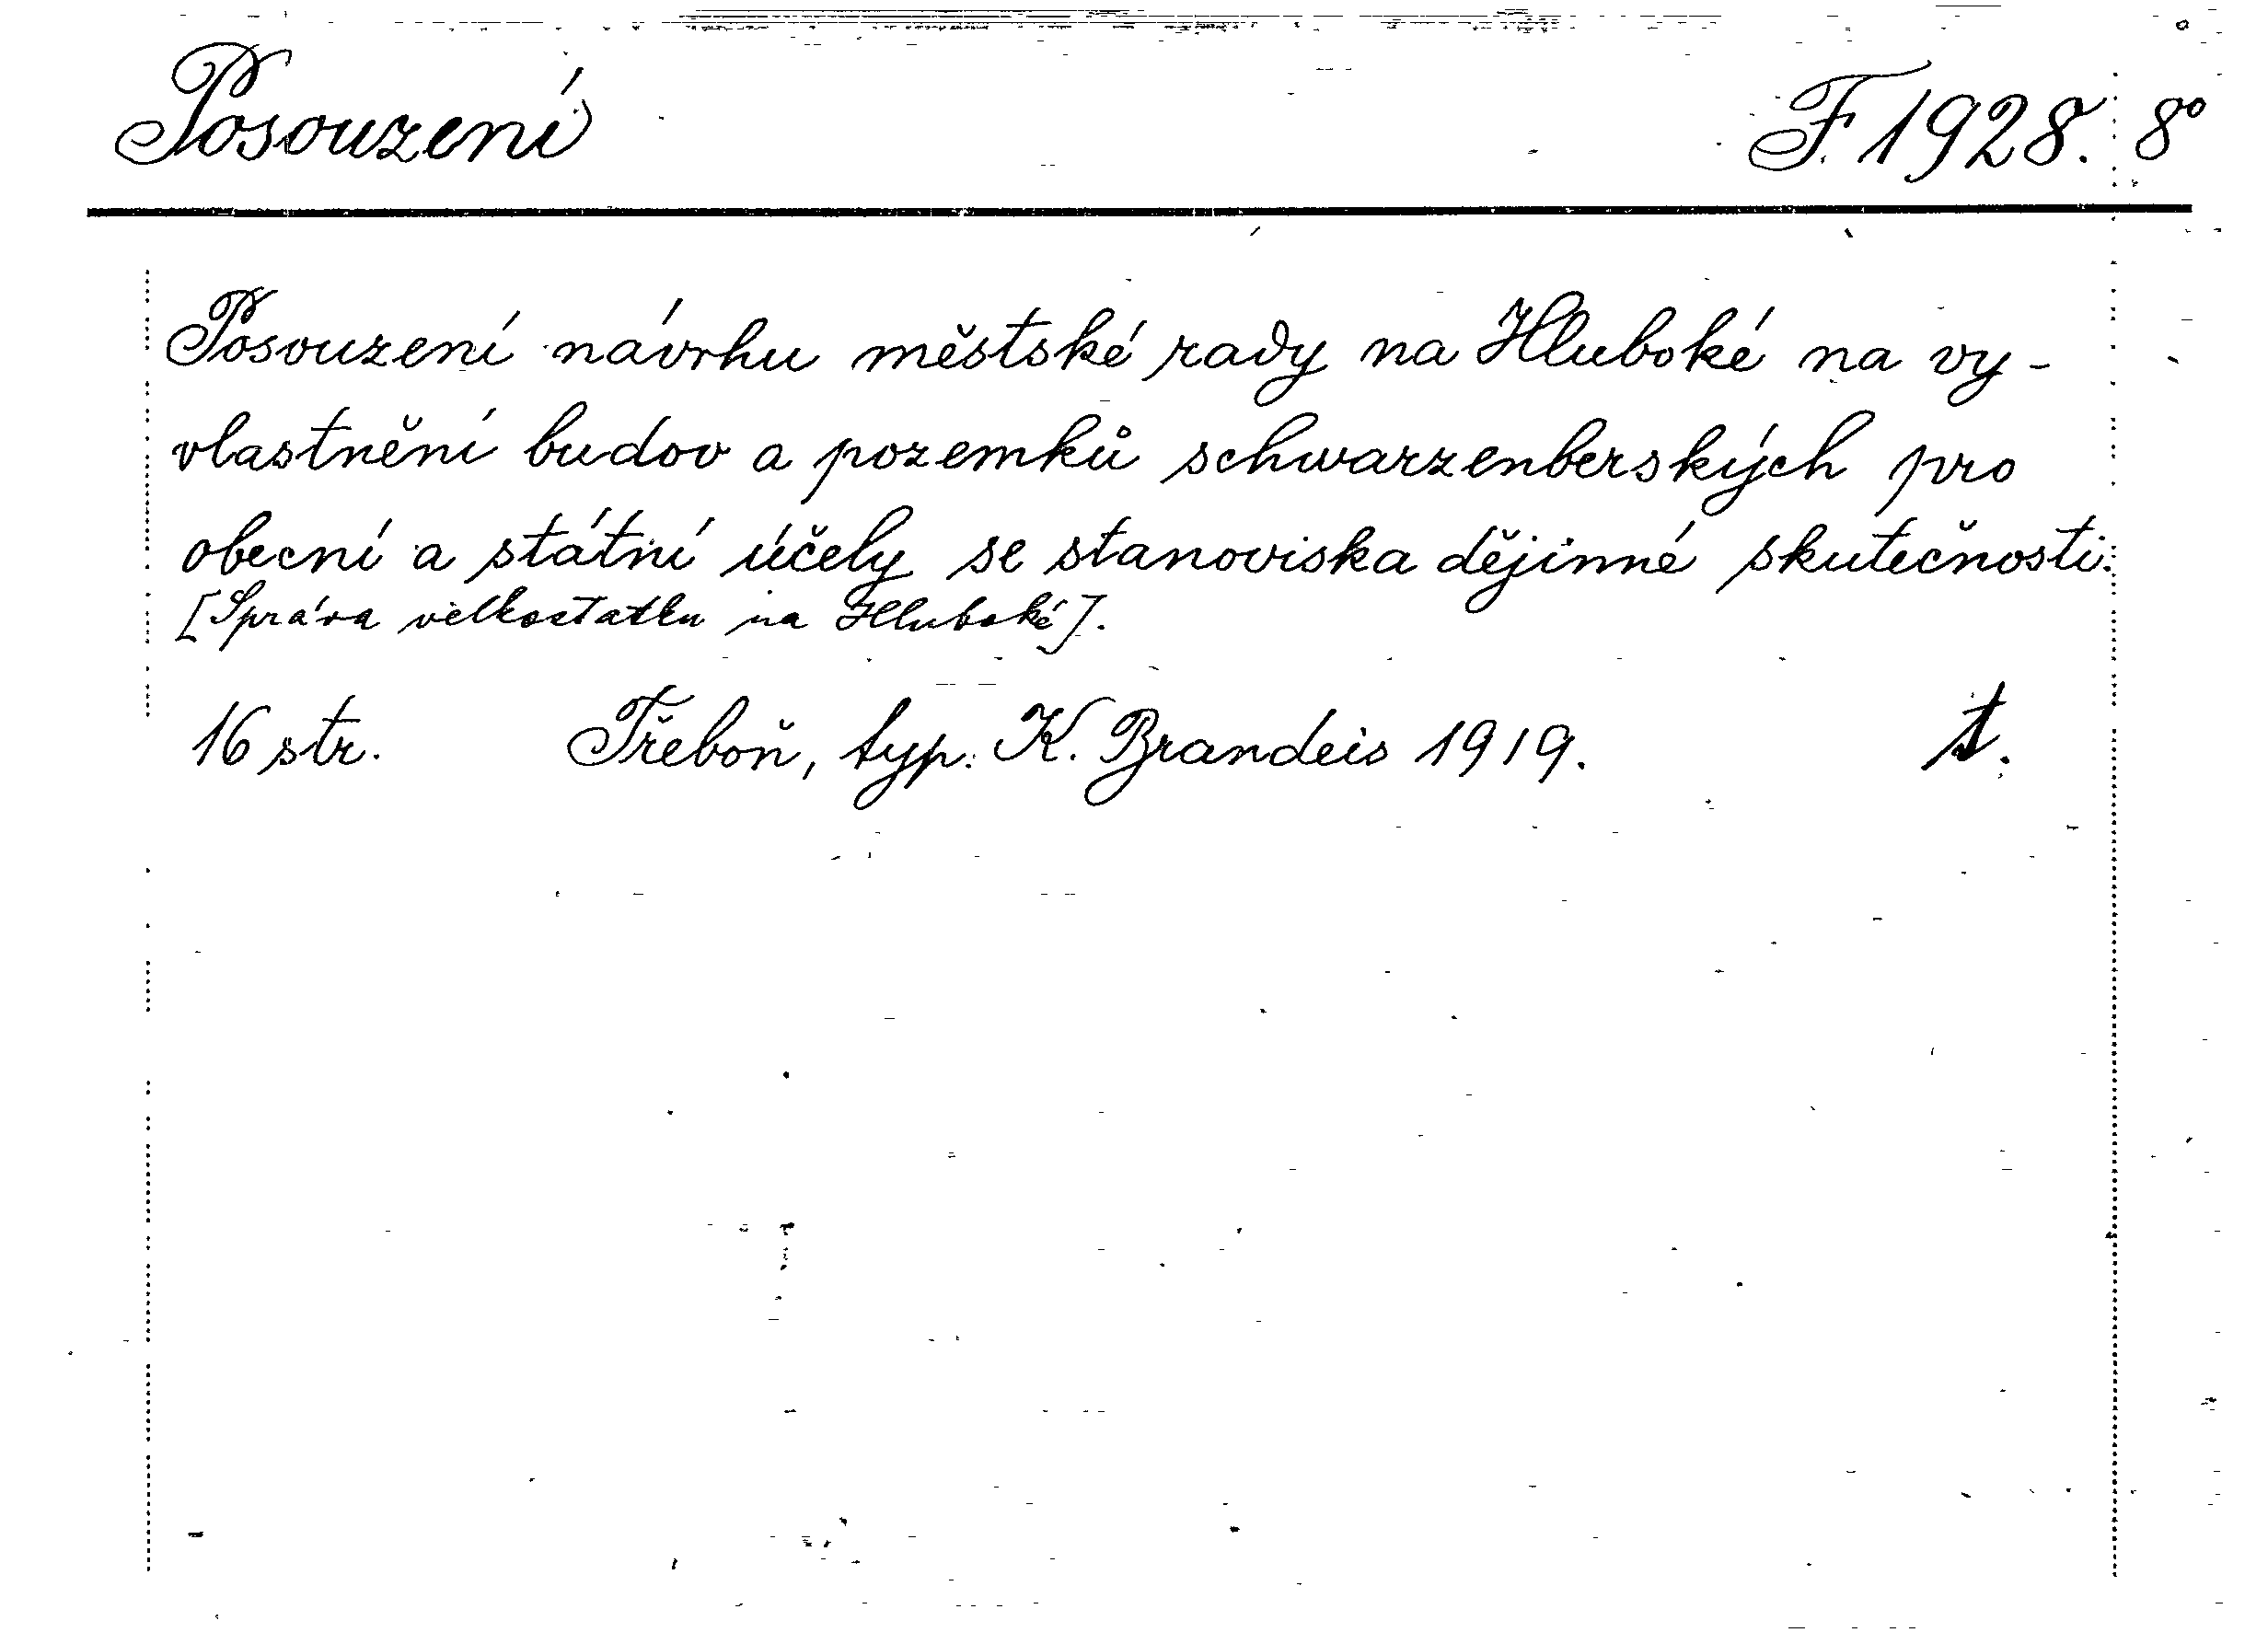 Posouzení F 1928. 8°
Posouzení návrhu městské rady na Hluboké na vy-
vlastnění budov a pozemků schwarzenberských pro
obecní a státní účely se stanoviska dějinné skutečnosti.
[Správa velkostatku na Hluboké].
16 str. Třeboň, typ. K. Brandeis 1919. t.